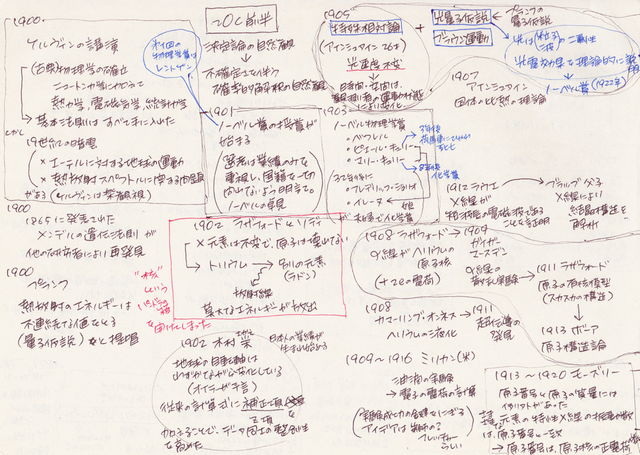 1900.
ケルヴィンの講演
古典物理学の確立
ニュートン力学にかわって
熱力学、電磁気学、統計力学
基本法則はすべて手に入れた
しかし
19世紀の暗雲
× エーテルに対する地球の運動
× 熱放射スペクトルに関する問題
がある (ケルヴィンは楽観視)
1900
1865に発表された
メンデルの遺伝法則が
他の研究者により再発見
1900
プランク
熱放射のエネルギーは
不連続な値をとる
(量子仮説) などと提唱
20C前半
決定論の自然観
不確定さを伴う
確率的自然観
第1回の
物理学賞は
レントゲン
1901
ノーベル賞の授賞が
始まる
選考は業績のみを
重視し、国籍を一切
問わないよう明言。
ノーベルの卓見
1905
特殊相対論
(アインシュタイン 26才)
光速度不変
+
光量子仮説
ブラウン運動
プランクの
量子仮説
光は(粒子/波)の二重性
光電効果を理論的に説明
ノーベル賞(1922年)
1907
アインシュタイン
固体の比熱の理論
1903
ノーベル物理学賞
・ベクレル
・ピエール・キュリー
・マリー・キュリー
3年後
荷馬車にひかれて
死亡
8年後
化学賞
32年後に
・フレデリック・ジョリオ
・イレーヌ
娘
夫婦で化学賞
1912 ラウエ
X線が
短波長の電磁波である
ことを証明
ブラッグ父子
X線により
結晶構造を
解析
1902 ラザフォードとソディ
× 元素は不変で、原子は壊れない
トリウム → 別の元素
(ラドン)
放射線
莫大なエネルギーが放出
"核"
という
パンドラの箱
を開けてしまった
1902 木村 栄
日本人の業績が
生まれ始める
地球の自転軸は
わずかながら変化している
(オイラーが予言)
従来の計算式に補正項
Z項を
加えることで、データ同士の整合性
を高めた
1908 ラザフォード
α線がヘリウムの
原子核
(+2eの電荷)
1909
ガイガー
マースデン
α線の
散乱実験
1911 ラザフォード
原子の有核模型
(スカスカの構造)
1913 ボーア
原子構造論
1908
カマーリング・オンネス
ヘリウムの液化
1911
超伝導の
発見
1909〜1916 ミリカン(米)
油滴の実験
→ 電子の電荷の計算
フレッチャー
らしい
1913〜1920 モーズリー
原子番号と原子の質量には
元素の特性X線の
は、原子番号と一致
→ 原子番号は、原子核の正電荷